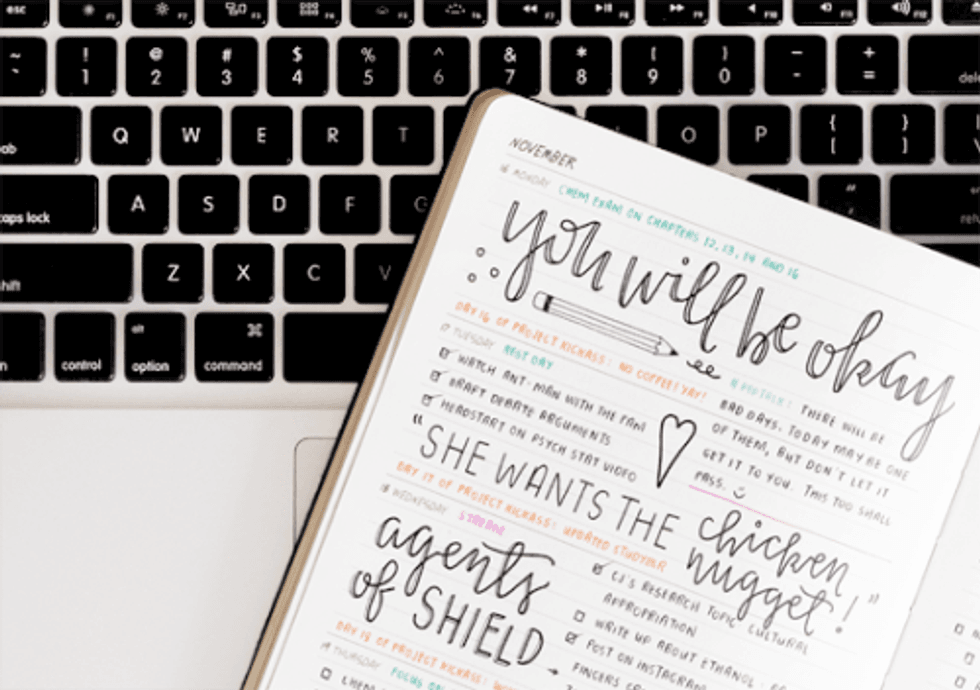 esc F1 F2 F3 F4 F5 F6 F7 F8 F9 F10 F11 F12
~ ! 1 @ 2 # 3 $ 4 % 5 ^ 6 & 7 * 8 ( 9 ) 0 _ - + = dele
ab Q W E R T O P { [ } ]
caps lock A S D F G " retu
shift Z X C V
control alt option ⌘ command
NOVEMBER
16 MONDAY CHEM EXAM ON CHAPTERS 12, 13, 14 AND 16
you will be okay
DAY 16 OF PROJECT KICKASS: NO COFFEE! YAY!
17 TUESDAY REST DAY
WATCH ANT-MAN WITH THE FAM
DRAFT DEBATE ARGUMENTS
HEADSTART ON PSYCH STAT VIDEO
THERE WILL BE
BAD DAYS. TODAY MAY BE ONE
OF THEM, BUT DON'T LET IT
GET IT TO YOU. THIS TOO SHALL
PASS.
"SHE WANTS THE chicken nugget!"
DAY 17 OF PROJECT KICKASS: UPDATED STUDYBLR
18 WEDNESDAY
agents
of SHIELD
CJ'S RESEARCH TOPIC CULTURAL
APPROPRIATION
WRITE UP ABOUT ETHANOL
POST ON INSTAGRAM
FINGERS
DAY 18 OF PROJECT KICKASS:
19 THURSDAY FOCUS ON
CHEM